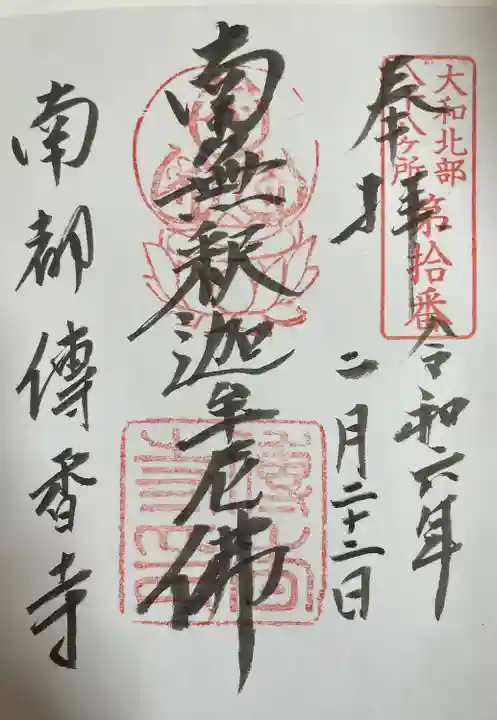 大和北部
八十八ヶ所
第拾番
奉拝
令和六年
二月二十二日
南無釈迦牟尼佛
南都傳香寺